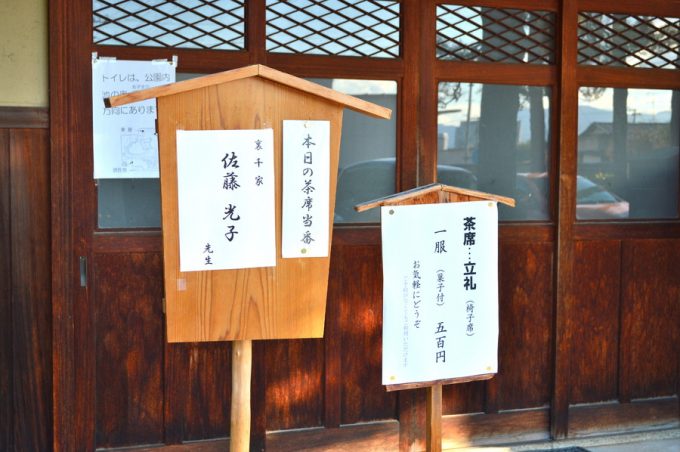 本日の茶席当番
裏千家
佐藤 光子
先生
茶席…立礼(椅子席)
一服(菓子付)五百円
お気軽にどうぞ
トイレは、公園内
方向にありま